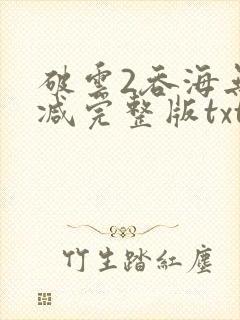 破雲2吞海
减完整版txt
竹生踏紅塵